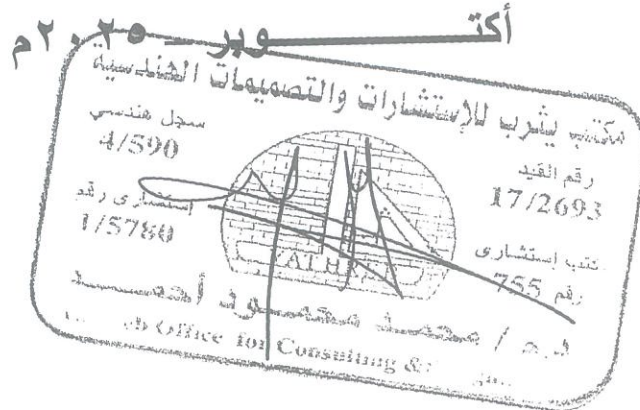 أكتـــــــوبر – ٢٠٢٥م
مكتب يثرب للإستشارات والتصميمات الهندسية
سجل هندسي
4/590
رقم القيد
17/2693
إستشارى رقم
1/5780
مكتب إستشارى
رقم 755
YATHREB
د.م / محمد محمود أحمد
Office for Consulting &